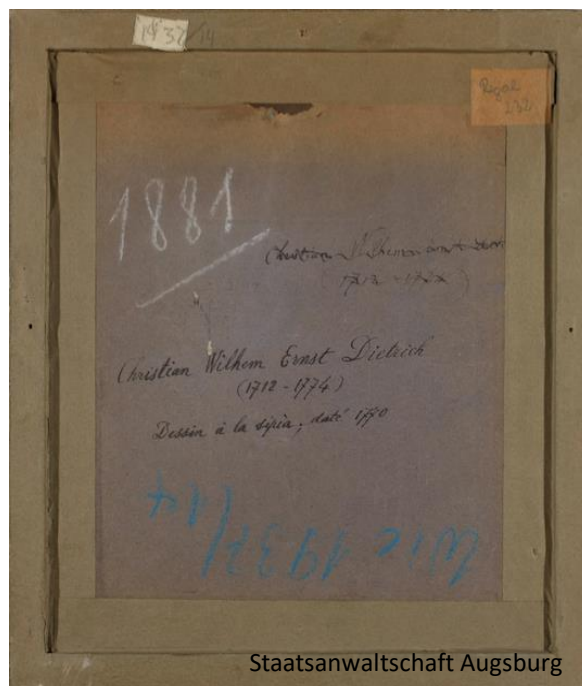 1937/14
Regal
232
1881
Christian Wilhem Ernst
(1712 - 1774)
Christian Wilhem Ernst Dietrich
(1712 - 1774)
Dessin à la sépia, daté 1770
1937/14
Staatsanwaltschaft Augsburg